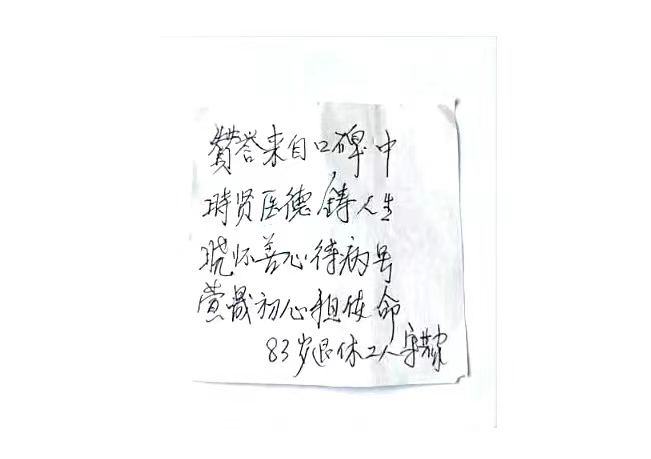 赞誉来自口碑中
时贤医德铸人生
晓怀善心待病号
萱晟初心担使命
83岁退休工人宋